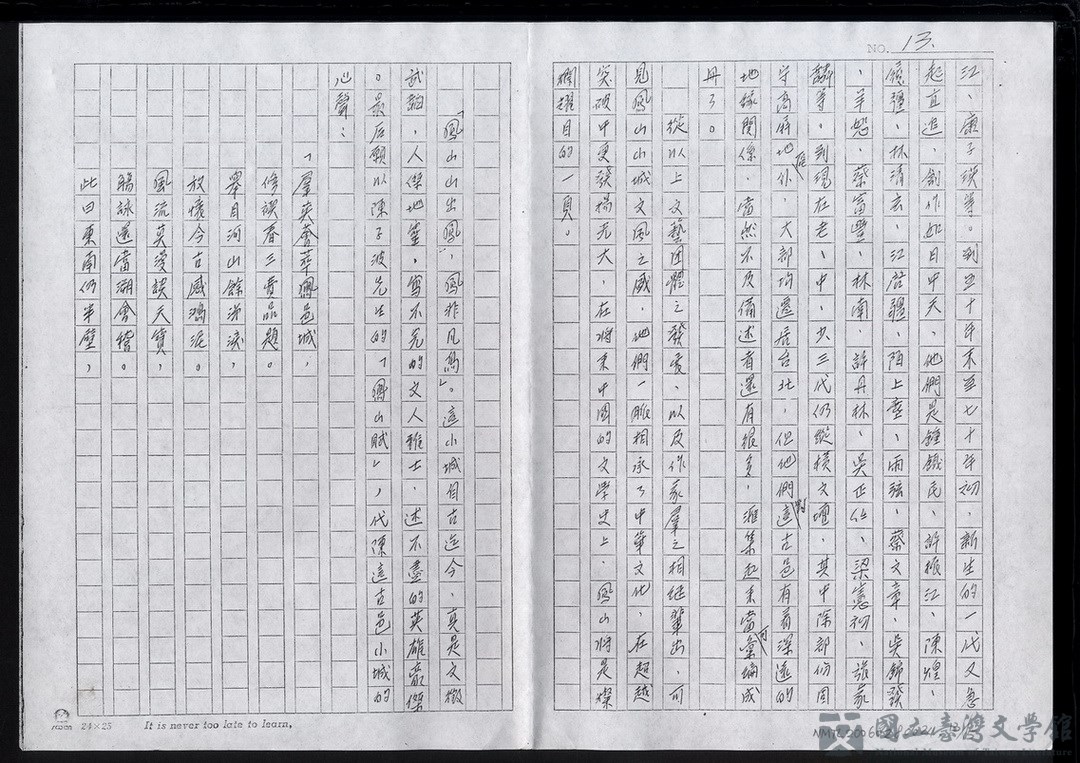 NO. 13.
江、康子瑛等。到五十年末至七十年初,新生的一代又急
起直追,創作如日中天,他們是鍾鐵民、許振江、陳煌、
履彊、林清玄、江启疆、陌上塵、雨弦、蔡文章、吳錦發
、羊恕、蔡富豐、林南、許丹林、吳正仁、梁憲初、張豪
麟等,到現在老、中、少三代仍縱橫文壇,其中除部份固
守高屏地區外,大部均遷居台北,但他們這對古邑有着深遠的
地緣關係,當然不及備述者還有很多,滙集起來當可彙編成
冊了。
從以上文藝团體之發展,以及作家羣之相继輩出,可
見鳳山山城文風之盛,她們一脈相承了中華文化,在超越
突破中更發揚光大,在將來中國的文學史上,鳳山將是燦
爛耀目的一頁。
「鳳山山出鳳,鳳非凡鳥」。這小城自古迄今,真是文徵
試詔,人傑地靈,寫不完的文人雅士,述不盡的英雄豪傑
。最后願以陳子波先生的「鳳山賦」,代陳這古邑小城的
心聲:
「羣英薈萃鳳邑城,
修禊春三費品題。
舉目河山餘涕淚,
放懷今古感鴻泥。
風流莫漫談天寶,
觴詠還當溯會稽。
此日東南仍半壁,
24×25 It is never too late to learn,
國立臺灣文學館